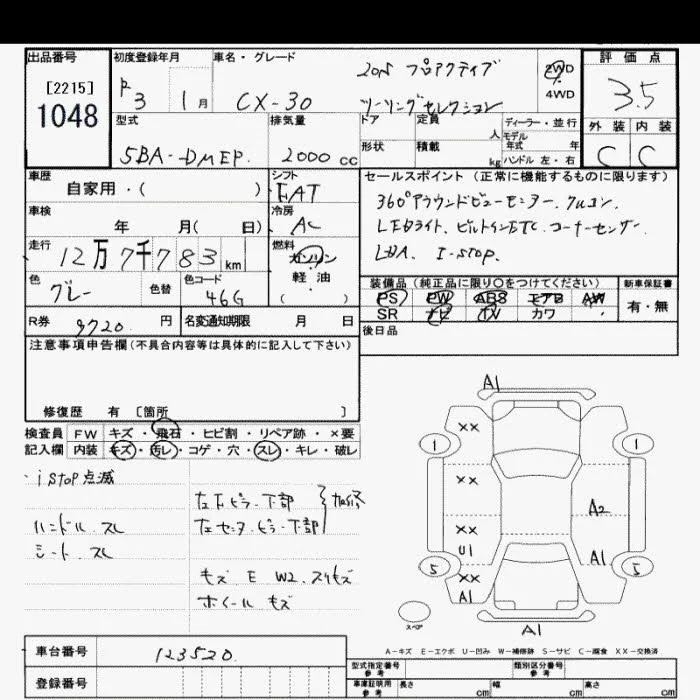 出品番号
[2215]
1048
初度登録年月
R3 1月
車名・グレード
CX-30
20S プロアクティブ
ツーリングセレクション
2WD
4WD
評価点
3.5
外装 内装
C C
型式
5BA-DMEP.
排気量
2000 cc
ドア
定員
人
形状
積載
kg
ディーラー・並行
モデル
年式 年
ハンドル 左・右
車歴
自家用・( )
シフト
FAT
セールスポイント(正常に機能するものに限ります)
360°アラウンドビューモニター.クルコン.
LEDライト.ビルトインETC.コーナーセンサー.
LDA. I-STOP.
車検
年 月( 日)
冷房
AC
走行
12万7千783km
燃料
ガソリン
軽・油
( )
色
グレー
色替
色コード
46G
装備品(純正品に限り○をつけてください)
PS PW ABS エアB AW
SR ナビ TV カワ
新車保証書
有・無
R券
9720. 円
名変通知期限 月 日
後日品
注意事項申告欄(不具合内容等は具体的に記入して下さい)
修復歴 有 〔箇所 〕
検査員 FW キズ・飛石・ヒビ割・リペア跡・×要
記入欄 内装 キズ・汚レ・コゲ・穴・スレ・キレ・破レ
・i STOP点滅
左Fピラー下部
左センターピラー下部
加修
ハンドル.スレ
シート.スレ
キズ E W2.スリキズ
ホイール キズ
A1
××
1
1
××
A2
××
U1
A1
5
5
××
A1
スペア
A1
A-キズ E-エクボ U-凹み W-補修跡 S-サビ C-腐食 XX-交換済
車台番号
123520.
登録番号
型式指定番号
参考
類別区分番号
参考
車庫証明用
参考
長さ cm 幅 cm 高さ cm